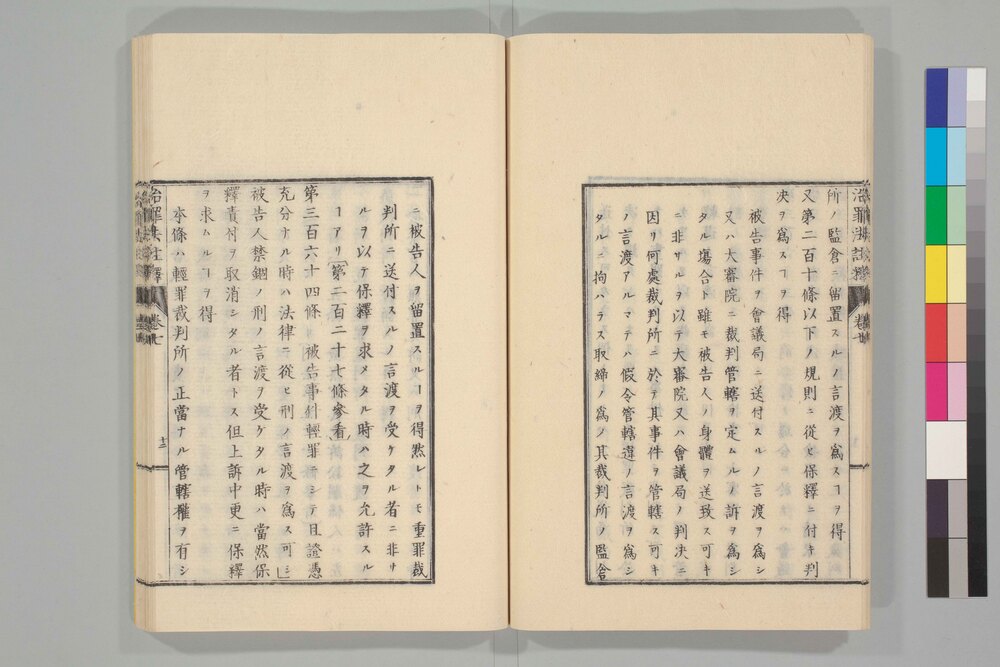 治罪法註釋 卷七
所ノ監倉ニ留置スルノ言渡ヲ爲スヿヲ得
又第二百十條以下ノ規則ニ從ヒ保釋ニ付キ判
決ヲ爲スヿヲ得
被告事件ヲ會議局ニ送付スルノ言渡ヲ爲シ
又ハ大審院ニ裁判管轄ヲ定ムルノ訴ヲ爲シ
タル塲合ト雖モ被告人ノ身體ヲ送致ス可キ
ニ非サルヲ以テ大審院又ハ會議局ノ判决ニ
因リ何處裁判所ニ於テ其事件ヲ管轄ス可キ
ノ言渡アルマテハ假令管轄違ノ言渡ヲ爲シ
タルニ拘ハラス取締ノ爲メ其裁判所ノ監倉
ニ被告人ヲ留置スルヿヲ得然レトモ重罪裁
判所ニ送付スルノ言渡ヲ受ケタル者ニ非サ
ルヲ以テ保釋ヲ求メタル時ハ之ヲ允許スル
ヿアリ(第二百二十七條參看)
第三百六十四條 被告事件輕罪ニシテ且證憑
充分ナル時ハ法律ニ從ヒ刑ノ言渡ヲ爲ス可シ
被告人禁錮ノ刑ノ言渡ヲ受ケタル時ハ當然保
釋責付ヲ取消シタル者トス但上訴中更ニ保釋
ヲ求ムルヿヲ得
本條ハ輕罪裁判所ノ正當ナル管轄權ヲ有シ
治罪法註釋 卷七